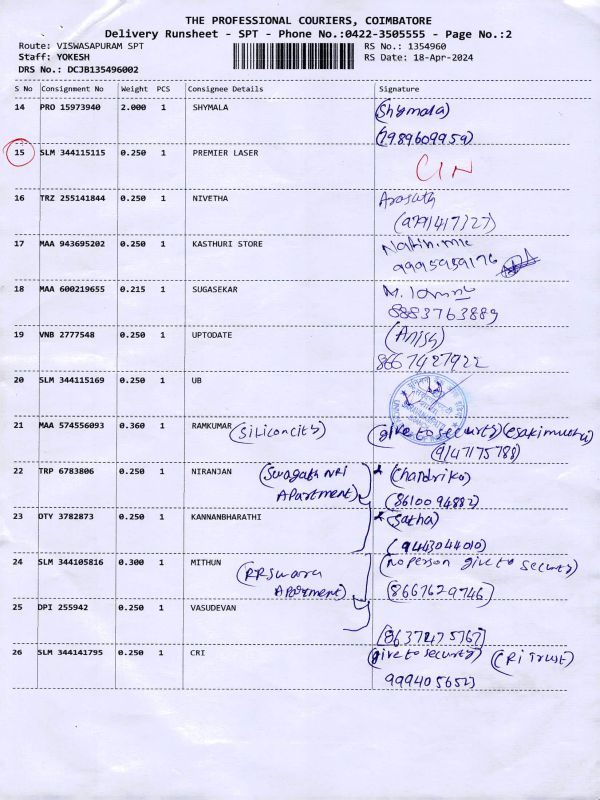 THE PROFESSIONAL COURIERS, COIMBATORE
Delivery Runsheet - SPT - Phone No.:0422-3505555 - Page No.:2
Route: VISWASAPURAM SPT
RS No.: 1354960
Staff: YOKESH
RS Date: 18-Apr-2024
DRS No.: DCJB135496002
S No Consignment No Weight PCS Consignee Details Signature
14 PRO 15973940 2.000 1 SHYMALA (Shymala)
(7989609959)
15 SLM 344115115 0.250 1 PREMIER LASER CIN
16 TRZ 255141844 0.250 1 NIVETHA
(9791417327)
17 MAA 943695202 0.250 1 KASTHURI STORE
9995959176
18 MAA 600219655 0.215 1 SUGASEKAR
8883763889
19 VNB 2777548 0.250 1 UPTODATE (Anish)
8667427922
20 SLM 344115169 0.250 1 UB
21 MAA 574556093 0.360 1 RAMKUMAR (Siliconcity) (give to security) (esakimuthu)
(9147175788)
22 TRP 6783806 0.250 1 NIRANJAN (Swagath NRI (Chandrika)
Apartment) (8610094882)
23 OTY 3782873 0.250 1 KANNANBHARATHI (Satha)
(9443044010)
24 SLM 344105816 0.300 1 MITHUN (RR Swara (No person give to security)
Apartment) (8667629746)
25 DPI 255942 0.250 1 VASUDEVAN
(8637475767)
26 SLM 344141795 0.250 1 CRI (give to security) (CRI Trust)
9994056523